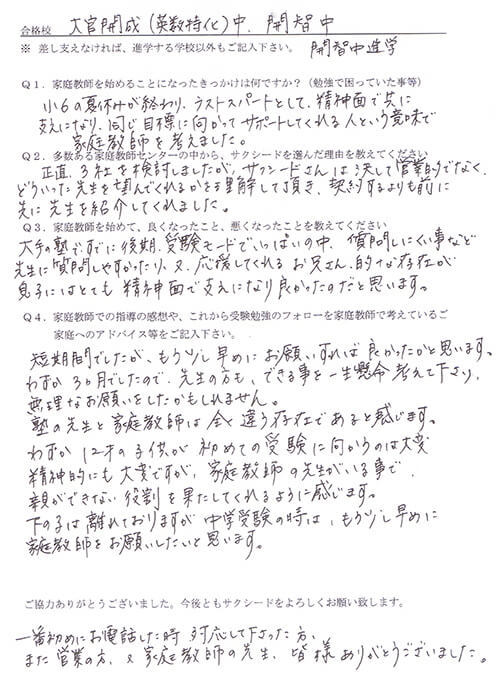 合格校 大宮開成(英数特化)中、開智中
※ 差し支えなければ、進学する学校以外もご記入下さい。 開智中進学
Q1. 家庭教師を始めることになったきっかけは何ですか?(勉強で困っていた事等)
小6の夏休みが終わり、ラストスパートとして、精神面で共に
支えになり、同じ目標に向かってサポートしてくれる人という意味で
家庭教師を考えました。
Q2. 多数ある家庭教師センターの中から、サクシードを選んだ理由を教えてください
正直、3社を検討しましたが、サクシードさんは決して営業的でなく、
どういった先生を望んでくれるかを理解して頂き、契約するよりも前に
先に先生を紹介してくれました。
Q3. 家庭教師を始めて、良くなったこと、悪くなったことを教えてください
大手の塾ですでに後期、受験モードでいっぱいの中、質問しにくい事など
先生に質問しやすかったり、又、応援してくれるお兄さん的な存在が
息子にはとても精神面で支えになり良かったのだと思います。
Q4. 家庭教師での指導の感想や、これから受験勉強のフォローを家庭教師で考えているご
家庭へのアドバイス等をご記入下さい。
短期間でしたが、もう少し早めにお願いすれば良かったかと思います。
わずか3ヵ月でしたので、先生の方も、できる事を一生懸命考えて下さり、
無理なお願いをしたかもしれません。
塾の先生と家庭教師は全く違う存在であると感じます。
わずか12才の子供が初めての受験に向かうのは大変
精神的にも大変ですが、家庭教師の先生がいる事で、
親ができない役割を果たしてくれるように感じます。
下の子は離れておりますが中学受験の時は、もう少し早めに
家庭教師をお願いしたいと思います。
ご協力ありがとうございました。今後ともサクシードをよろしくお願い致します。
一番初めにお電話した時対応して下さった方、
また営業の方、又家庭教師の先生、皆様ありがとうございました。